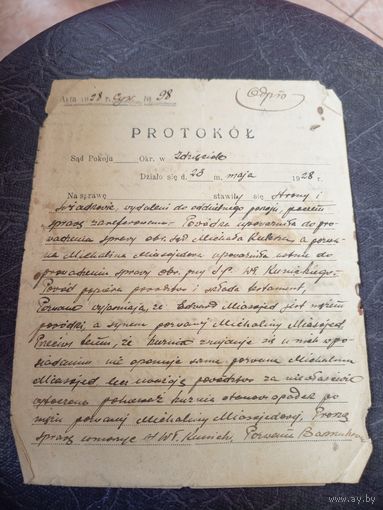 Akta 1928 r. Cyw. № 98
Odpis
PROTOKÓŁ
Sąd Pokoju Okr. w Zdzięciole
Działo się d. 23 m. maja 1928 r.
Na sprawę stawiły się strony i
świadkowie, wydaleni do oddzielnego pokoju, poczem
sprawę zareferowano. Powódka upoważniła do pro-
wadzenia sprawy obr. Sąd. Michała a pozwa-
na Michalina Miasojed upoważniła ustnie do
prowadzenia sprawy obr. przy S.P. Wł. Kunickiego.
Powód popiera powództwo i składa testament,
Pozwana wyjaśniają, że Edward Miasojed jest mężem
powódki, a synem pozwanej Michaliny Miasojed
Przeciw temu, że kuźnia znajduje się u nich w po-
siadaniu nie oponuje sama pozwana Michalina
Miasojed lecz uważają powództwo za niewłaściwie
wytoczone ponieważ kuźnia stanowi spadek po
mężu pozwanej Michaliny Miasojedowej, Proszą
sprawę umorzyć Wł. Kunick, Pozwani
ay.by